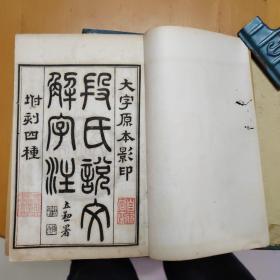 大字原本影印
段氏說文
解字注
附刻四種